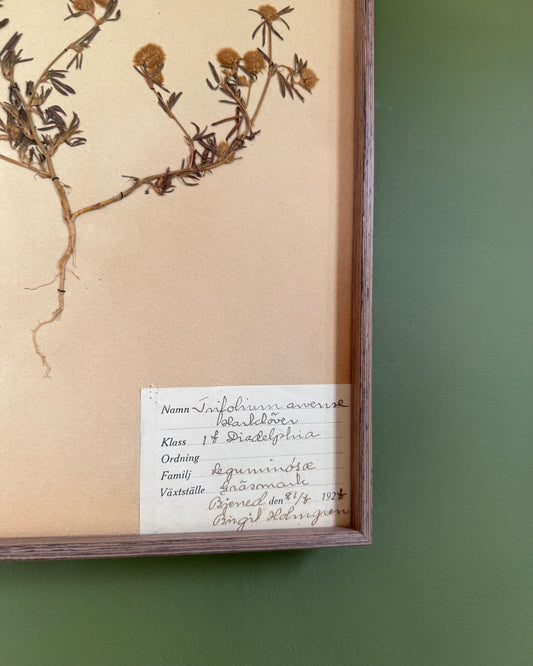 Namn Trifolium arvense
Harklöver
Klass 1 Diadelphia
Ordning
Familj Leguminósæ
Växtställe Gräsmark
Bjened den 8/8 192
Birgit Holmgren